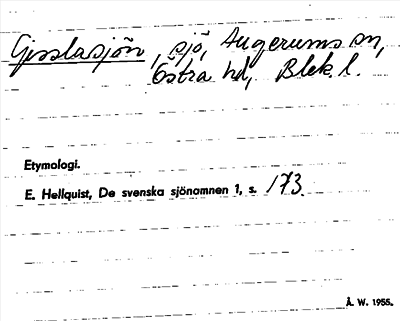 Gisslasjön, sjö, Augerums sn,
Östra hd, Blek. l.
Etymologi.
E. Hellquist, De svenska sjönamnen 1, s. 173.
Å. W. 1955.